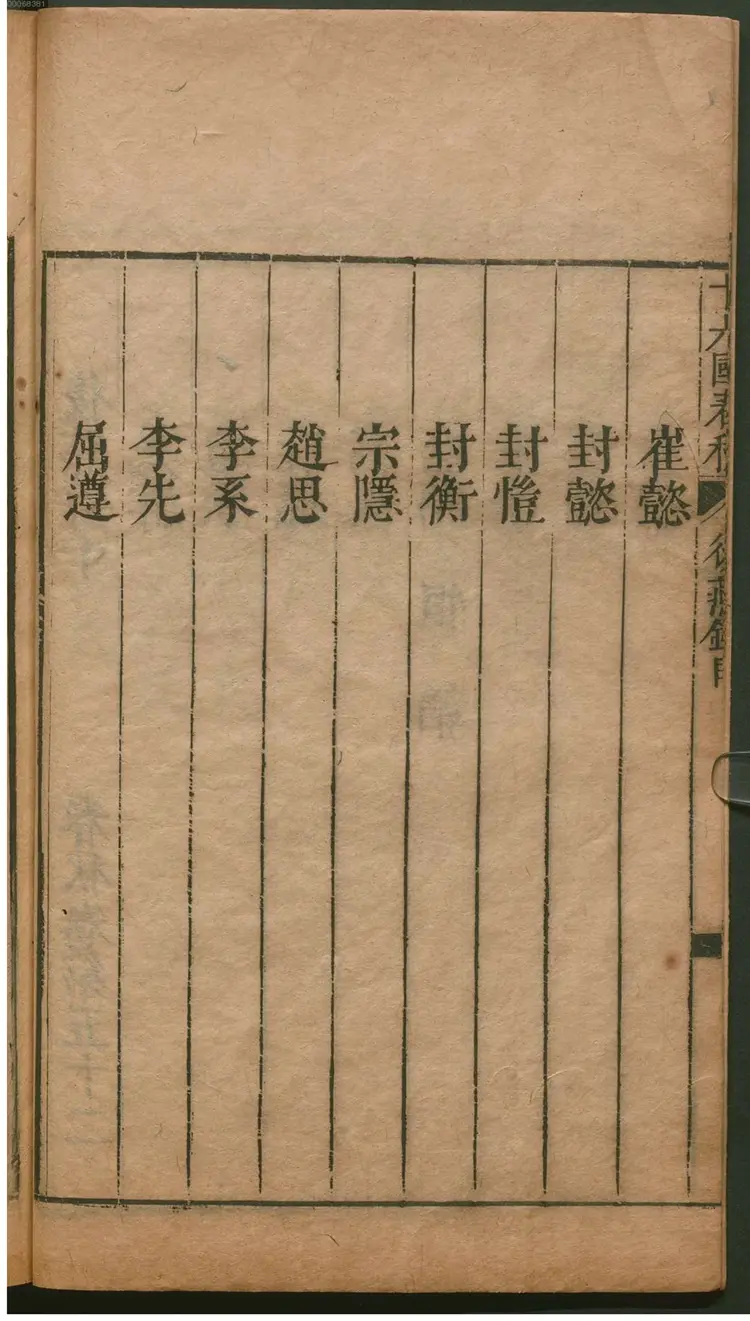 00068381
十六國春秋
後燕錄目
崔懿
封懿
封愷
封衡
宗隱
趙思
李系
李先
屈遵